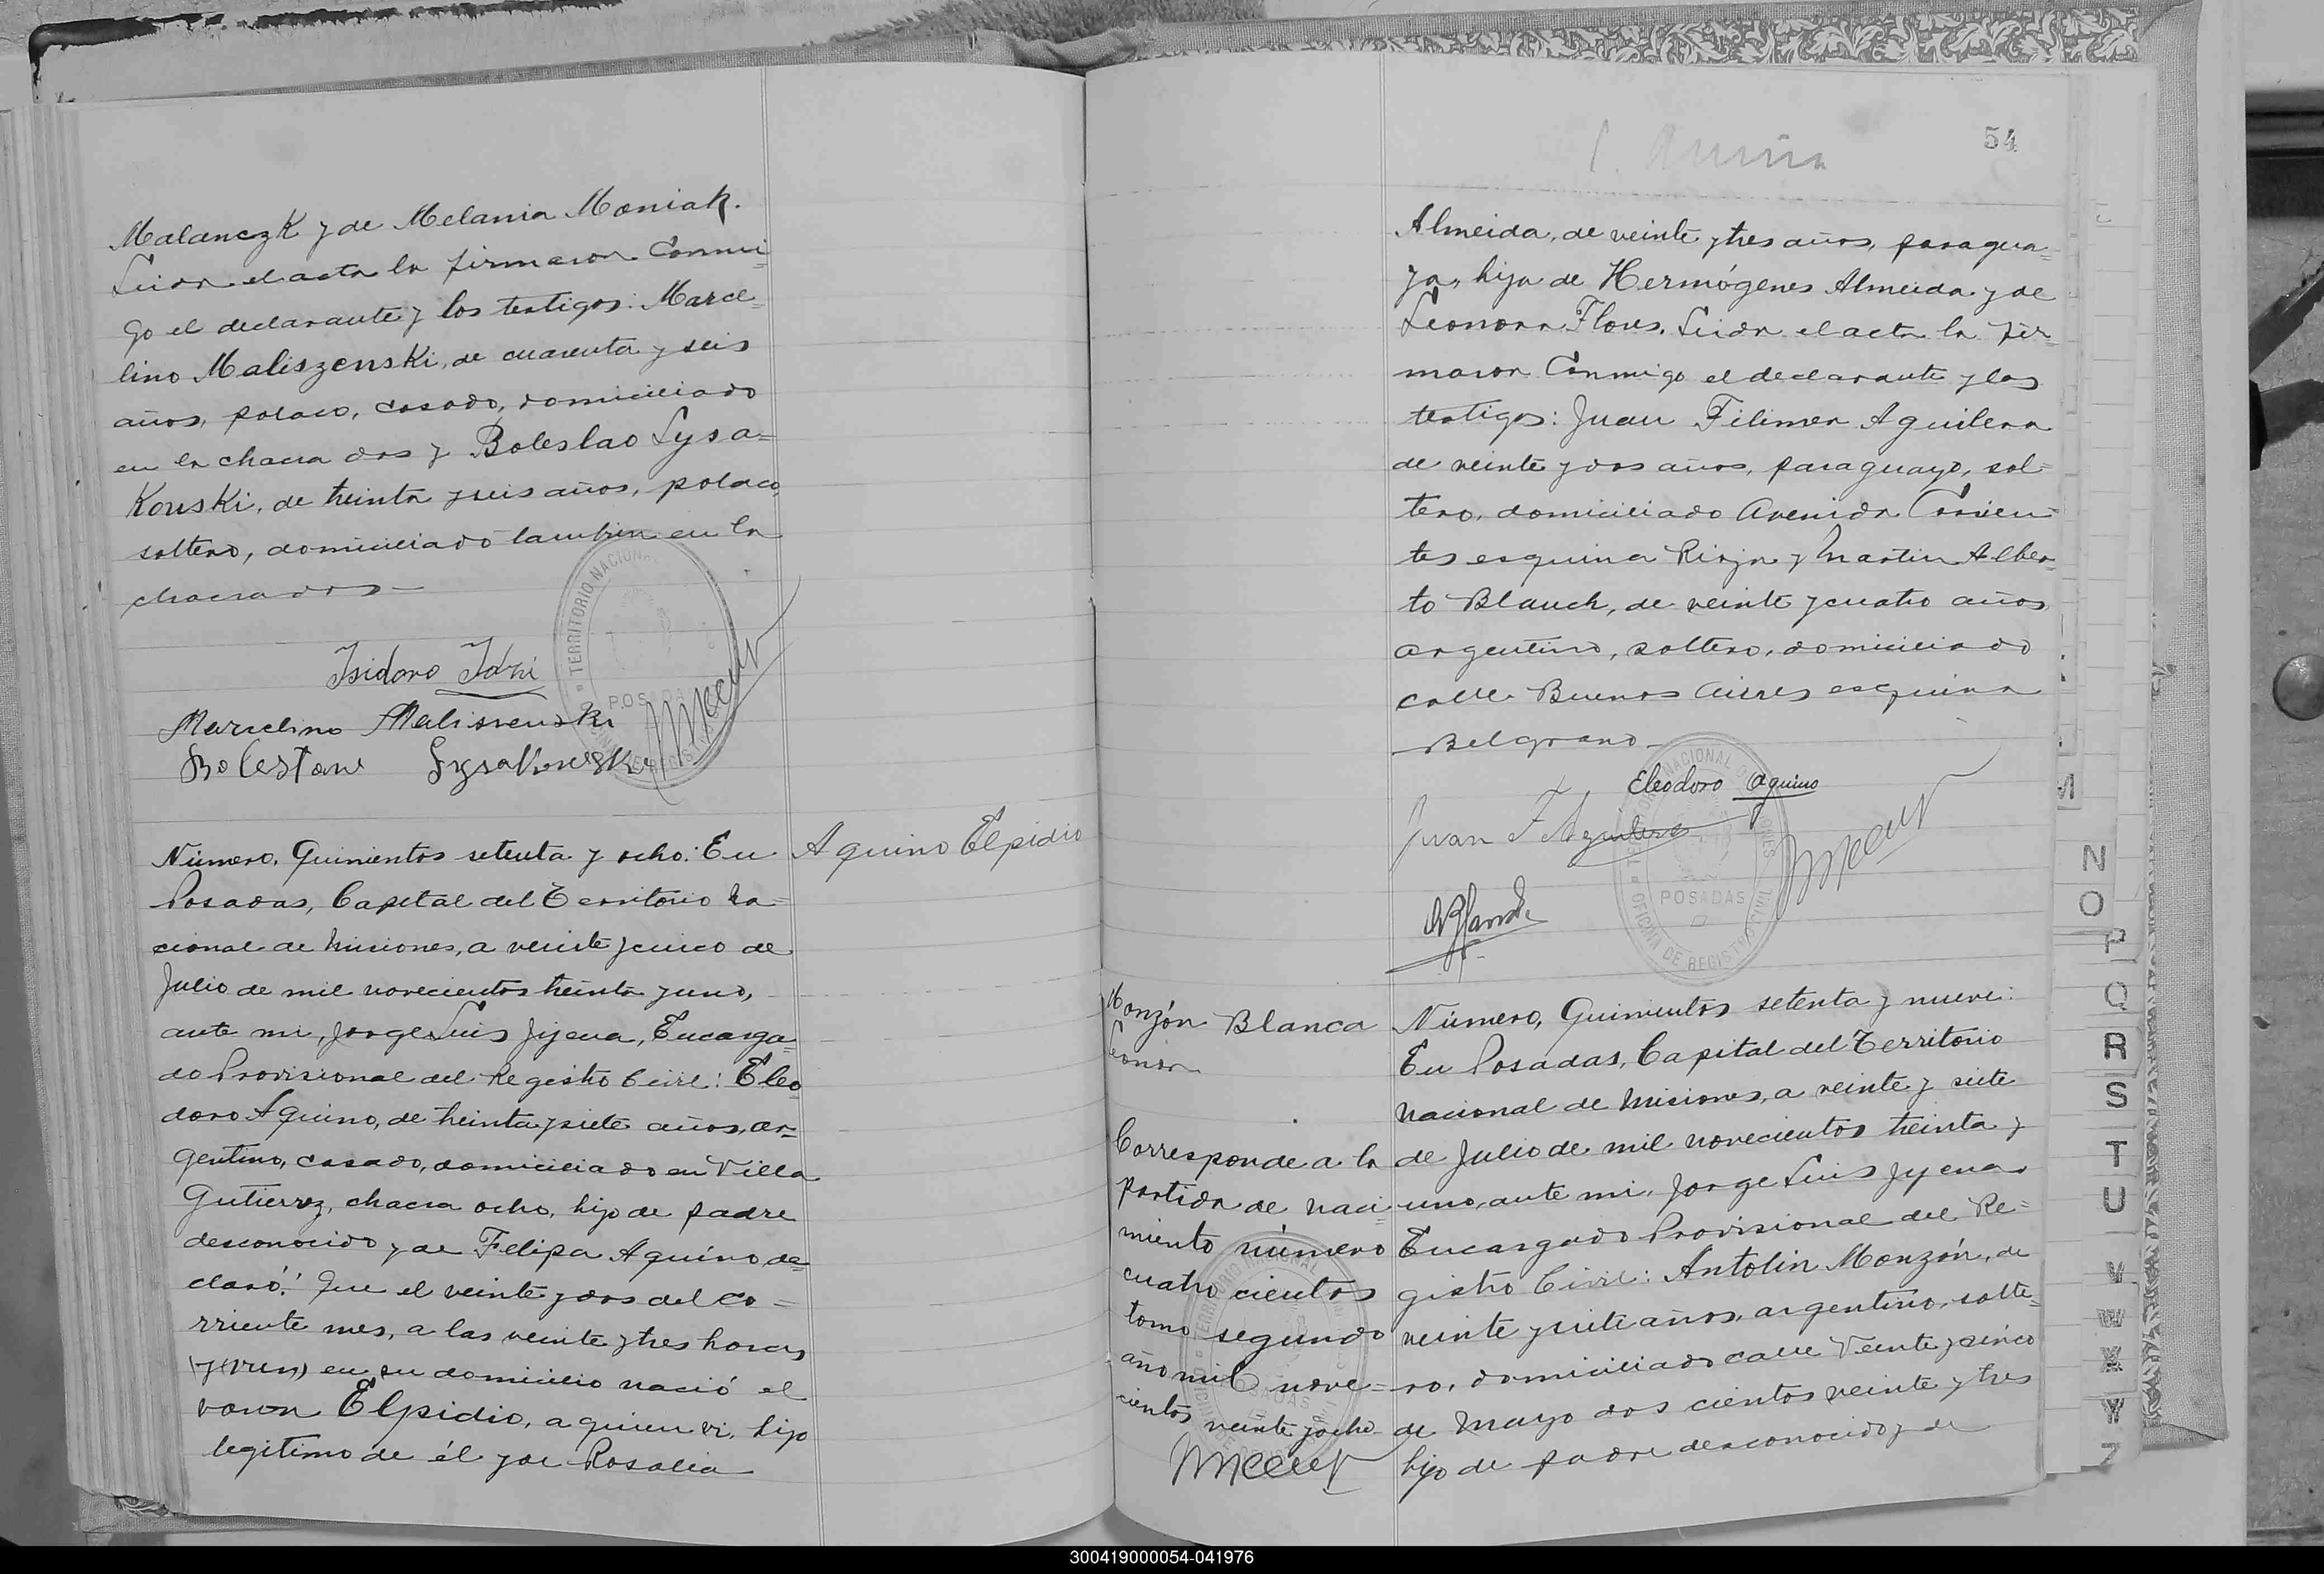 Malanczk y de Melania Moniak.
Leida el acta la firmaron Conmi=
go el declarante y los testigos: Marce=
lino Maliszenski, de cuarenta y seis
años, polaco, casado, domiciliado
en la chacra dos y Boleslao Lysa=
Kouski, de treinta y seis años, polaco,
soltero, domiciliado tambien en la
chacra dos—
Isidoro
Marcelino Malisrewski
Bolestaw Lysakowski
TERRITORIO NACIONAL
POSADAS
Número, Quinientos setenta y ocho: En
Posadas, Capital del Territorio Na=
cional de Misiones, a veinte y cinco de
Julio de mil novecientos treinta y uno,
ante mi, Jorge Luis Jijena, Encarga=
do Provisional del Registro Civil: Eleo
doro Aquino, de treinta y siete años, ar=
gentino, casado, domiciliado en Villa
Gutierrez, chacra ocho, hijo de padre
desconocido y de Felipa Aquino, de=
claró: Que el veinte y dos del co=
rriente mes, a las veinte y tres horas
en su domicilio nació el
varon Elpidio, a quien vi, hijo
legitimo de él y de Rosalia
Aquino Elpidio
54
Almeida, de veinte y tres años, paragua=
ya, hija de Hermógenes Almeida y de
Leonora Flores. Leida el acta la fir=
maron Conmigo el declarante y los
testigos: Juan Filimen Aguilera
de veinte y dos años, paraguayo, sol=
tero, domiciliado Avenida Corrien=
tes esquina Rioja y Martin Alber=
to Blanch, de veinte y cuatro años,
argentino, soltero, domiciliado
calle Buenos Aires esquina
Belgrano—
Eleodoro Aquino
Juan F Aguilera
POSADAS
OFICINA DE REGISTRO CIVIL
Monzón Blanca
Leonor
Corresponde a la
partida de naci=
miento número
cuatro cientos
tomo segundo
año mil nove=
cientos veinte y ocho
Número, Quinientos setenta y nueve:
En Posadas, Capital del Territorio
Nacional de Misiones, a veinte y siete
de Julio de mil novecientos treinta y
uno, ante mi, Jorge Luis Jijena
Encargado Provisional del Re=
gistro Civil: Antolin Monzón, de
veinte y siete años, argentino, solte=
ro, domiciliado calle Veinte y cinco
de Mayo dos cientos veinte y tres
hijo de padre desconocido y de
M
N
O
P
Q
R
S
T
U
V
W
X
Y
Z
300419000054-041976